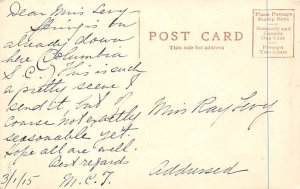 Dear Miss Levy
Spring is on
already down
here (Columbia
S.C.) This is such
a pretty scene, I
send it, but of
course not exactly
seasonable yet.
Hope all are well.
Best regards
3/1/15 M.C.T.
POST CARD
This side for address
Place Postage
Stamp Here
Domestic and
Canada,
One Cent
Foreign
Two Cents
Miss Ray Levy
Addressed